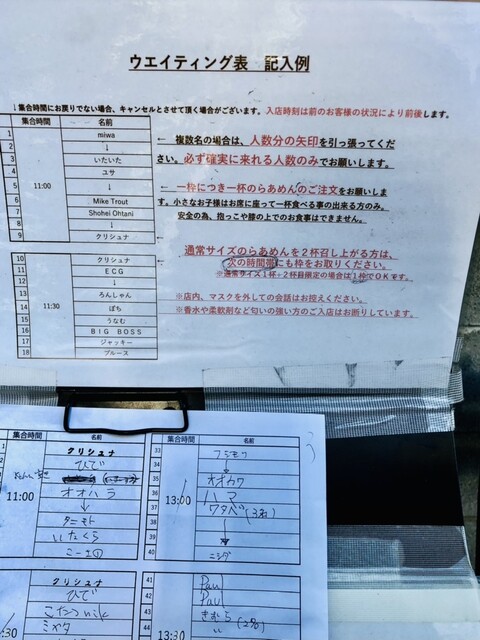 ウエイティング表 記入例
↓集合時間にお戻りでない場合、キャンセルとさせて頂く場合がございます。入店時刻は前のお客様の状況により前後します。
集合時間 名前
1 miwa
2 ↓
3 いたいた
4 ユサ
5 ↓
6 Mike Trout
7 Shohei Ohtani
8 ↓
9 クリシュナ
11:00
← 複数名の場合は、人数分の矢印を引っ張ってくだ
さい。必ず確実に来れる人数のみでお願いします。
←一枠につき一杯のらあめんのご注文をお願いしま
す。小さなお子様はお席に座って一杯食べる事の出来る方のみ。
安全の為、抱っこや膝の上でのお食事はできません。
10 クリシュナ
11 ECG
12 ↓
13 ろんしゃん
14 ぽち
15 うなむ
16 BIG BOSS
17 ジャッキー
18 ブルース
11:30
← 通常サイズのらあめんを2杯召し上がる方は、
次の時間帯にも枠をお取りください。
※通常サイズ1杯+2杯目限定の場合は1枠でOKです。
※店内、マスクを外しての会話はお控えください。
※香水や柔軟剤など匂いの強い方のご入店はお断りしています。
集合時間 名前
1 クリシュナ
ひで
オオハラ
↓
タニモト
いたくら
11:00
集合時間 名前
33
34 ↓
35 オオカワ
36 ハマ
37 ワタベ(3名)
38
39 ↓
40 ニシダ
13:00
クリシュナ
ひで
ミガタ
:30
41 Pau
42 Pau
43 きむら(2名)
44 〃
13:30